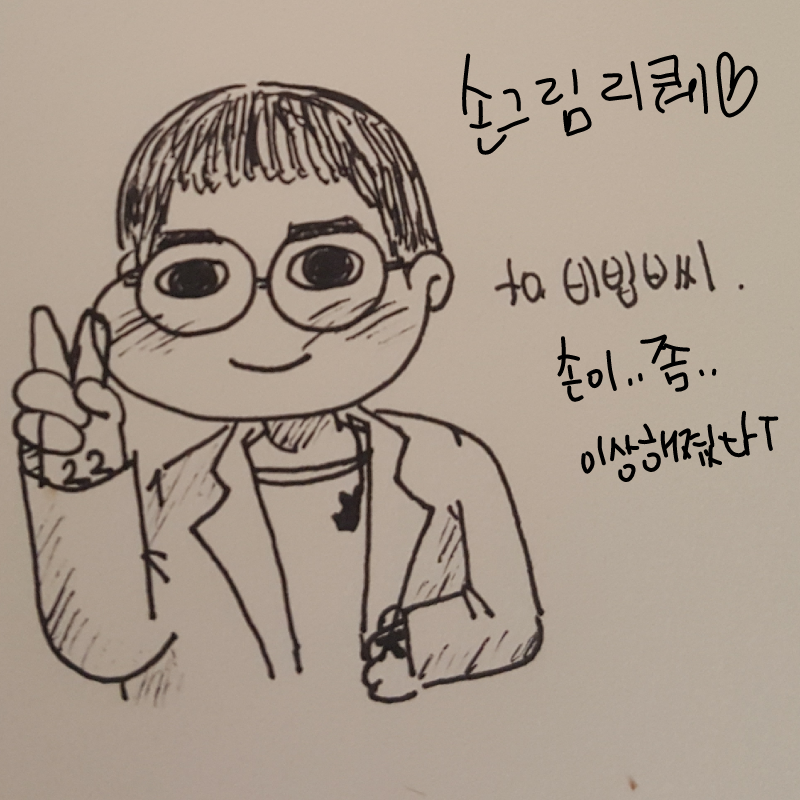 손그림 리퀘♡
to 비빔비씨.
손이..좀..
이상해졌다ㅜ
22